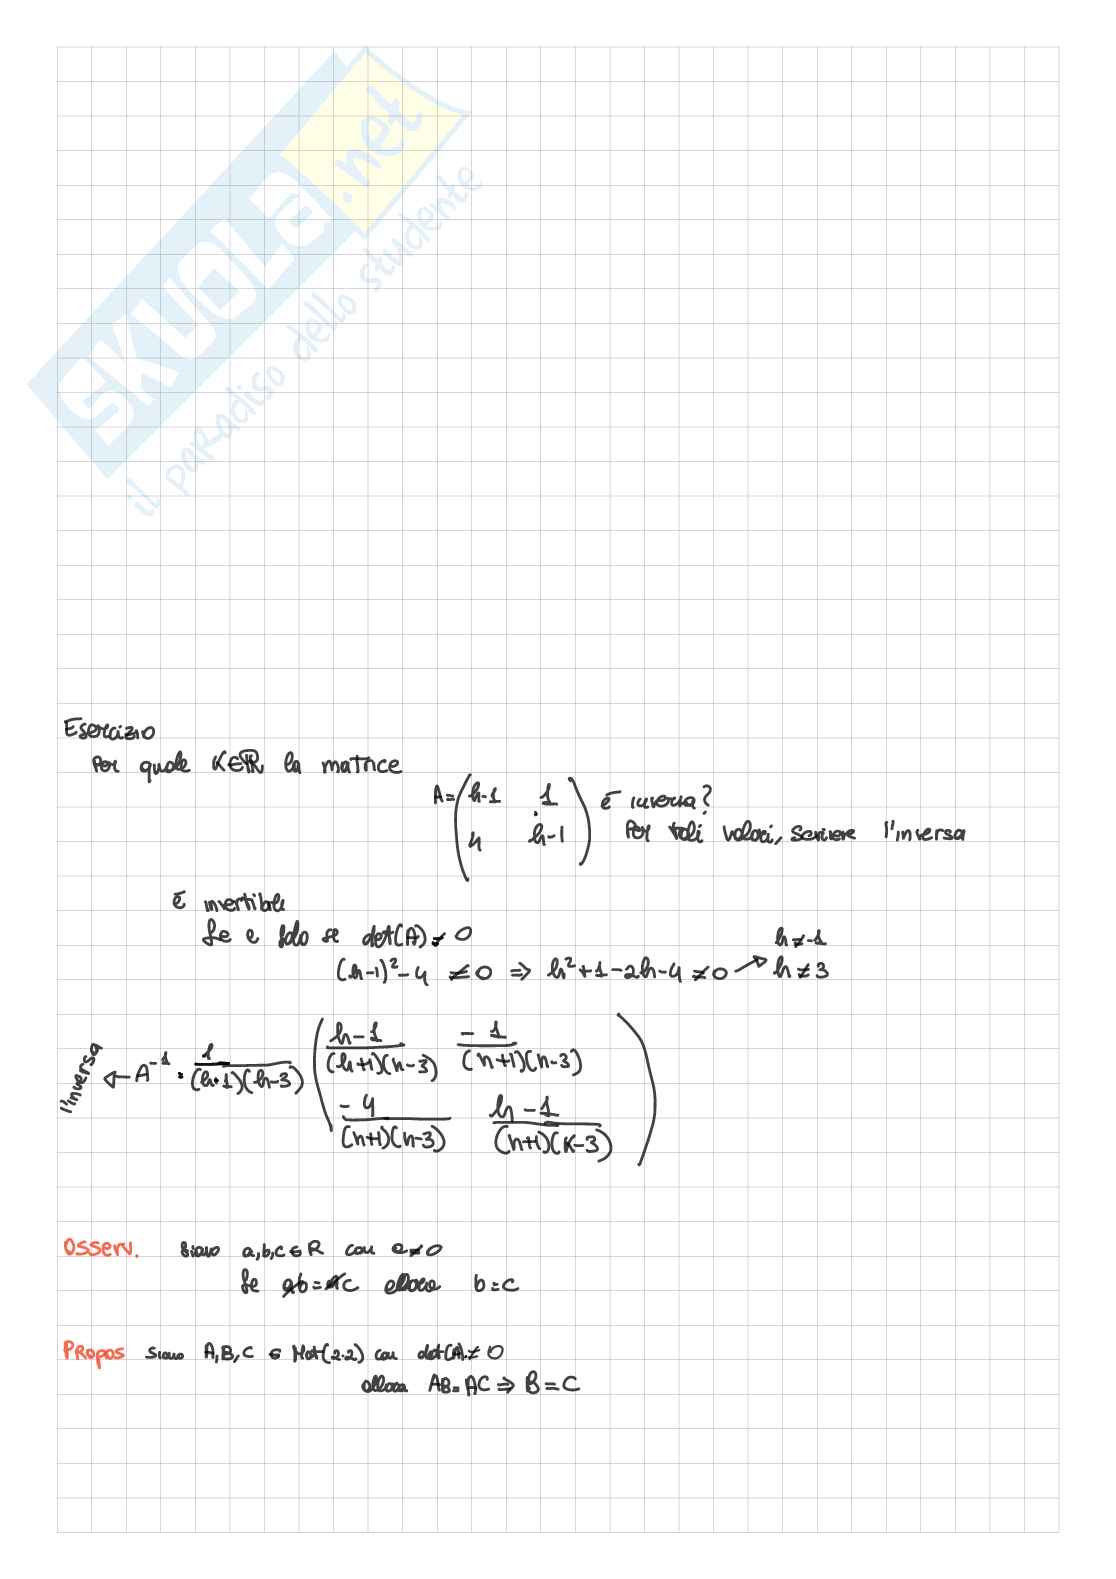 SKUOLA.net
il paradiso dello studente
Esercizio
Per quale K∈ℝ la matrice
A = ( h-1 1
é inversa?
4 h-1 )
Per tali valori, scrivere l'inversa
é invertibile
Se e solo se det(A) ≠ 0
h ≠ -1
(h-1)² - 4 ≠ 0 ⇒ h² + 1 - 2h - 4 ≠ 0 ↗ h ≠ 3
l'inversa ← A⁻¹ = 1/(h+1)(h-3) ( h-1/(h+1)(h-3) -1/(h+1)(h-3)
-4/(h+1)(h-3) h-1/(h+1)(K-3) )
Osserv. Siano a,b,c ∈ R con a ≠ 0
Se ab = ac allora b = c
Propos Siano A,B,C ∈ Mat(2.2) con det(A) ≠ 0
allora AB = AC ⇒ B = C